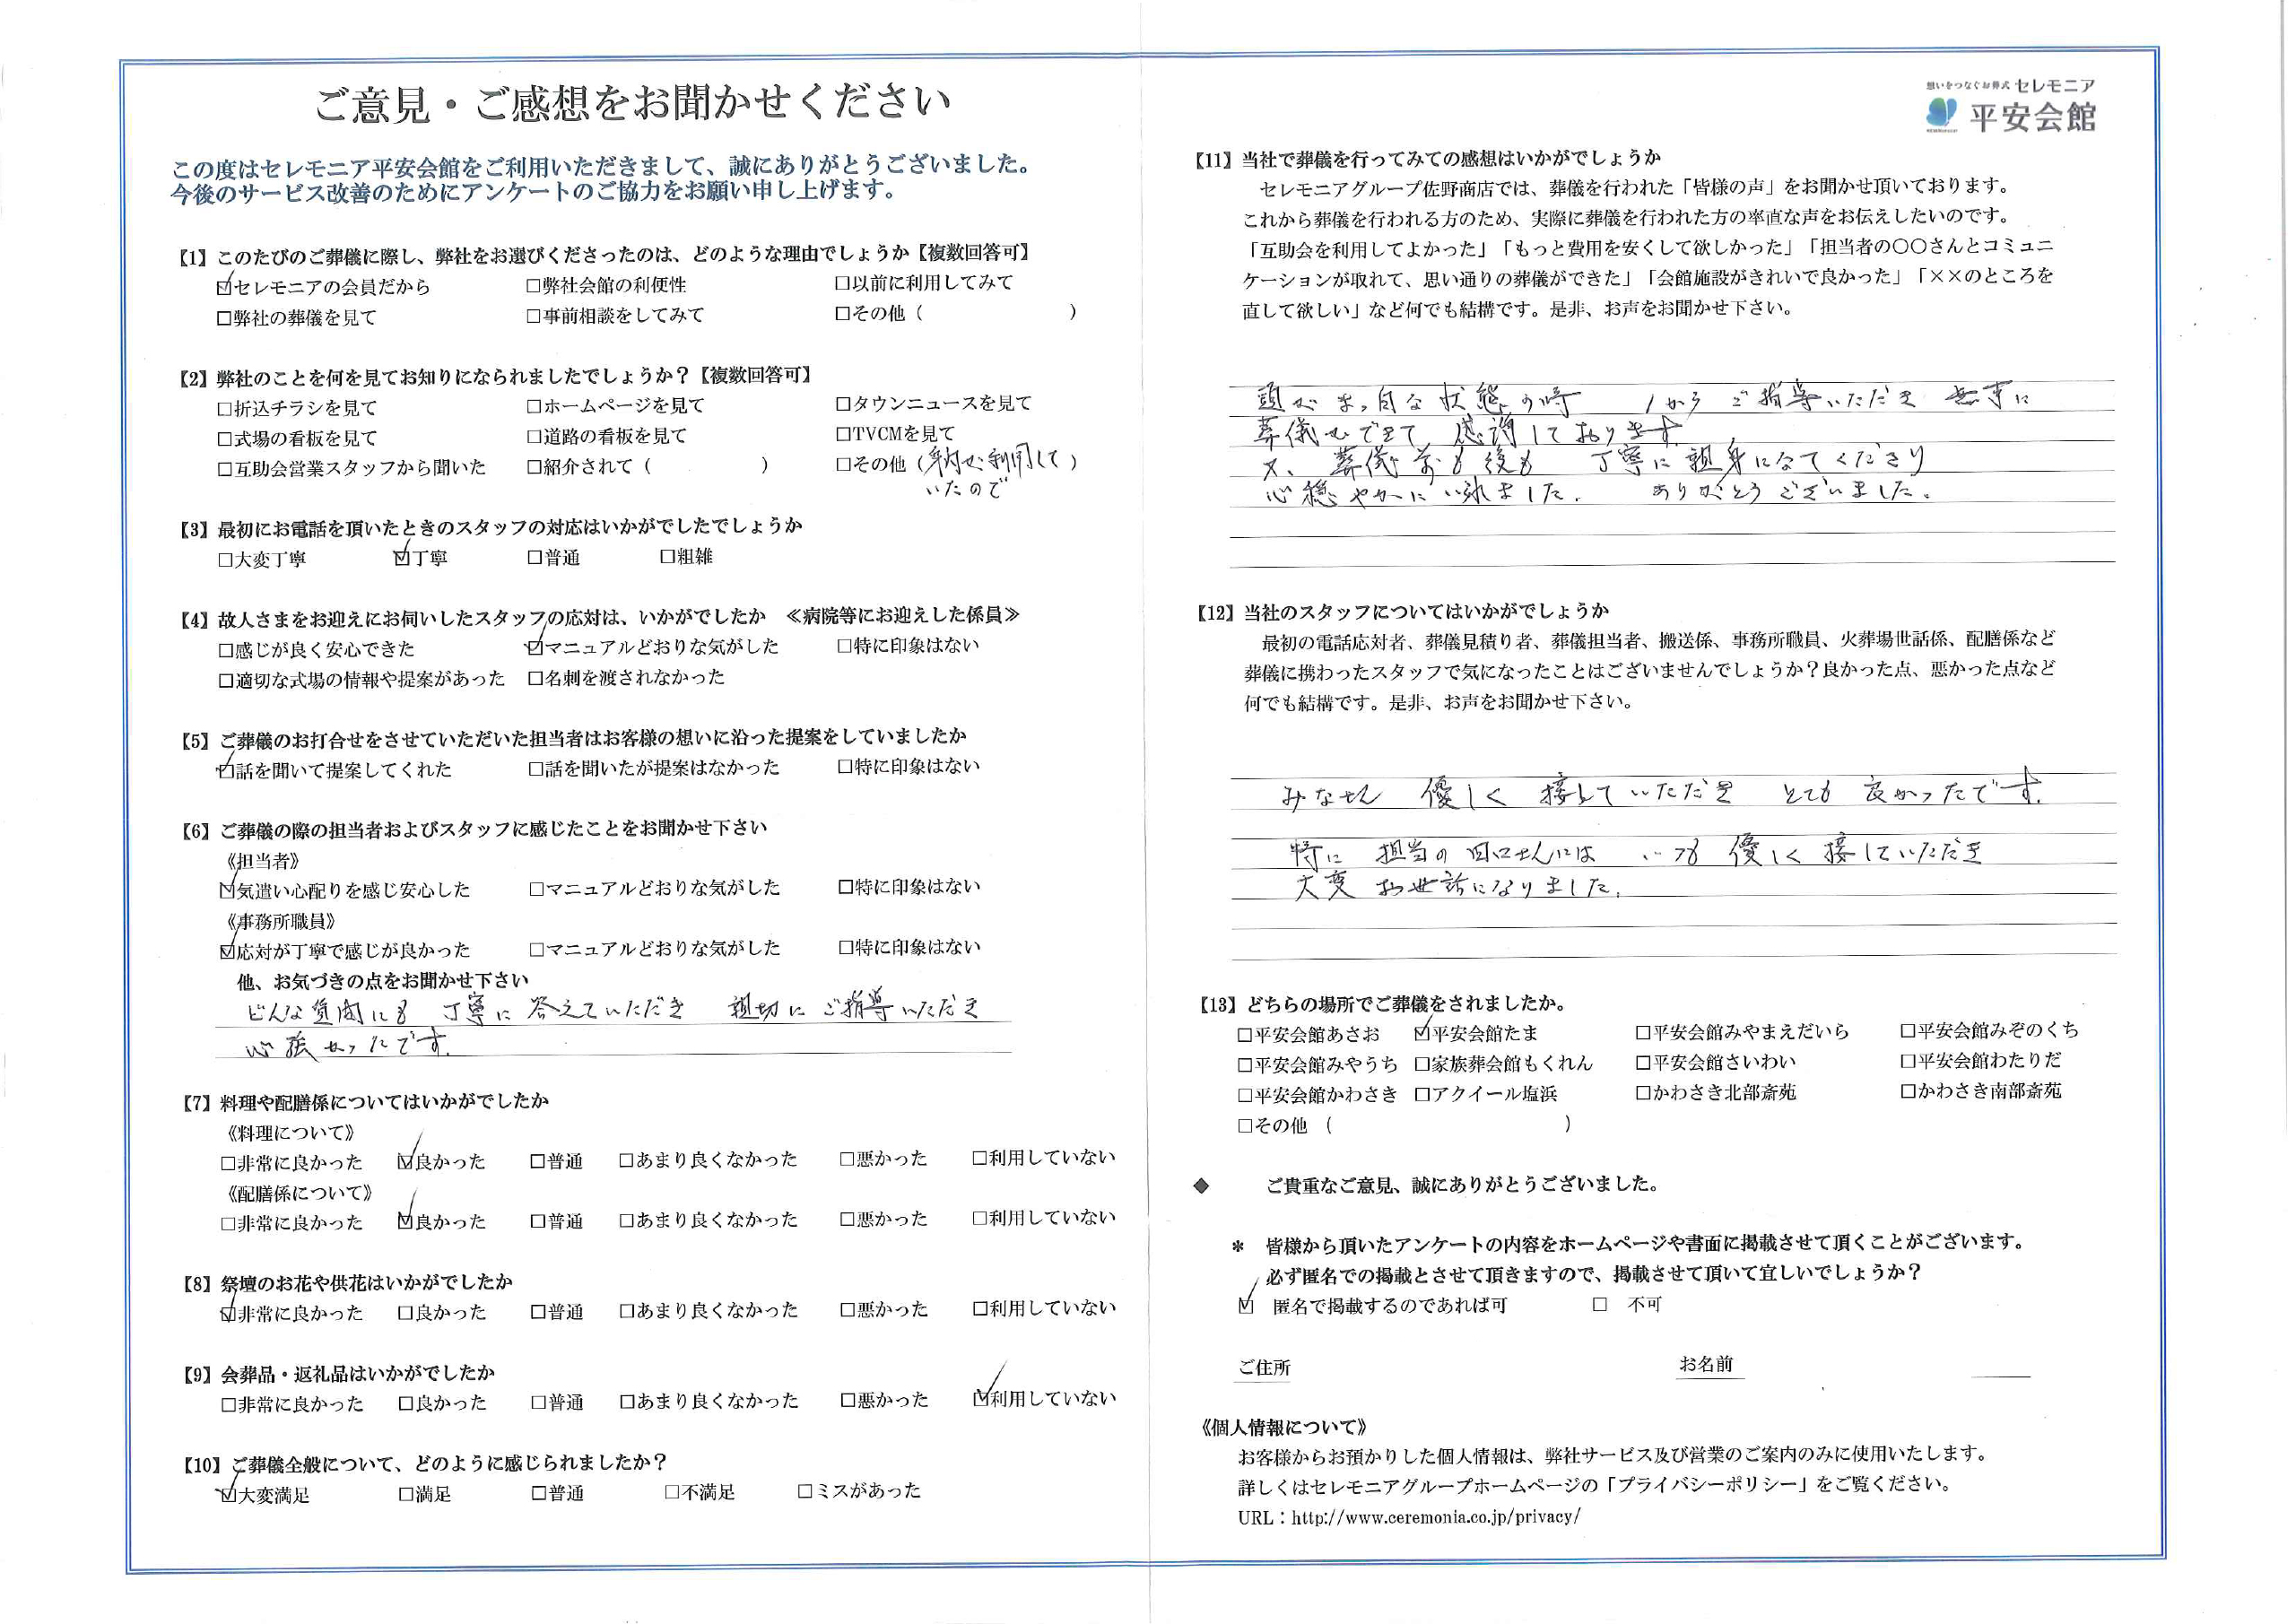 ご意見・ご感想をお聞かせください
この度はセレモニア平安会館をご利用いただきまして、誠にありがとうございました。
今後のサービス改善のためにアンケートのご協力をお願い申し上げます。
【1】このたびのご葬儀に際し、弊社をお選びくださったのは、どのような理由でしょうか【複数回答可】
☑セレモニアの会員だから □弊社会館の利便性 □以前に利用してみて
□弊社の葬儀を見て □事前相談をしてみて □その他（ ）
【2】弊社のことを何を見てお知りになられましたでしょうか？【複数回答可】
□折込チラシを見て □ホームページを見て □タウンニュースを見て
□式場の看板を見て □道路の看板を見て □TVCMを見て
□互助会営業スタッフから聞いた □紹介されて（ ） □その他（身内が利用して）
いたので
【3】最初にお電話を頂いたときのスタッフの対応はいかがでしたでしょうか
□大変丁寧 ☑丁寧 □普通 □粗雑
【4】故人さまをお迎えにお伺いしたスタッフの応対は、いかがでしたか ≪病院等にお迎えした係員≫
□感じが良く安心できた ☑マニュアルどおりな気がした □特に印象はない
□適切な式場の情報や提案があった □名刺を渡されなかった
【5】ご葬儀のお打合せをさせていただいた担当者はお客様の想いに沿った提案をしていましたか
☑話を聞いて提案してくれた □話を聞いたが提案はなかった □特に印象はない
【6】ご葬儀の際の担当者およびスタッフに感じたことをお聞かせ下さい
《担当者》
☑気遣い心配りを感じ安心した □マニュアルどおりな気がした □特に印象はない
《事務所職員》
☑応対が丁寧で感じが良かった □マニュアルどおりな気がした □特に印象はない
他、お気づきの点をお聞かせ下さい
どんな質問にも 丁寧に 答えていただき 親切に ご指導いただき
心強かったです。
【7】料理や配膳係についてはいかがでしたか
《料理について》
□非常に良かった ☑良かった □普通 □あまり良くなかった □悪かった □利用していない
《配膳係について》
□非常に良かった ☑良かった □普通 □あまり良くなかった □悪かった □利用していない
【8】祭壇のお花や供花はいかがでしたか
☑非常に良かった □良かった □普通 □あまり良くなかった □悪かった □利用していない
【9】会葬品・返礼品はいかがでしたか
□非常に良かった □良かった □普通 □あまり良くなかった □悪かった ☑利用していない
【10】ご葬儀全般について、どのように感じられましたか？
☑大変満足 □満足 □普通 □不満足 □ミスがあった
想いをつなぐお葬式 セレモニア
平安会館
【11】当社で葬儀を行ってみての感想はいかがでしょうか
セレモニアグループ佐野商店では、葬儀を行われた「皆様の声」をお聞かせ頂いております。
これから葬儀を行われる方のため、実際に葬儀を行われた方の率直な声をお伝えしたいのです。
「互助会を利用してよかった」「もっと費用を安くして欲しかった」「担当者の〇〇さんとコミュニ
ケーションが取れて、思い通りの葬儀ができた」「会館施設がきれいで良かった」「××のところを
直して欲しい」など何でも結構です。是非、お声をお聞かせ下さい。
頭がまっ白な状態の時 1から ご指導いただき 無事に
葬儀もできて 感謝しております
又、葬儀前も後も 丁寧に親身になってくださり
心穏やかにいれました。 ありがとうございました。
【12】当社のスタッフについてはいかがでしょうか
最初の電話応対者、葬儀見積り者、葬儀担当者、搬送係、事務所職員、火葬場世話係、配膳係など
葬儀に携わったスタッフで気になったことはございませんでしょうか？良かった点、悪かった点など
何でも結構です。是非、お声をお聞かせ下さい。
みなさん 優しく 接していただき とても 良かったです。
特に 担当の 田口さんには いつも 優しく 接していただき
大変 お世話になりました。
【13】どちらの場所でご葬儀をされましたか。
□平安会館あさお ☑平安会館たま □平安会館みやまえだいら □平安会館みぞのくち
□平安会館みやうち □家族葬会館もくれん □平安会館さいわい □平安会館わたりだ
□平安会館かわさき □アクイール塩浜 □かわさき北部斎苑 □かわさき南部斎苑
□その他 （ ）
◆ ご貴重なご意見、誠にありがとうございました。
＊ 皆様から頂いたアンケートの内容をホームページや書面に掲載させて頂くことがございます。
必ず匿名での掲載とさせて頂きますので、掲載させて頂いて宜しいでしょうか？
☑ 匿名で掲載するのであれば可 □ 不可
ご住所 お名前
《個人情報について》
お客様からお預かりした個人情報は、弊社サービス及び営業のご案内のみに使用いたします。
詳しくはセレモニアグループホームページの「プライバシーポリシー」をご覧ください。
URL：http://www.ceremonia.co.jp/privacy/